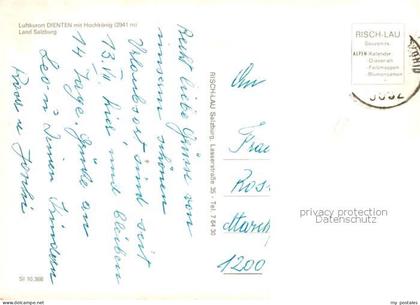 Luftkurort DIENTEN mit Hochkönig (2941 m)
Land Salzburg
Recht liebe Grüsse von
unserem schönen
Urlaubsort sind seit
13. hier und bleiben
14 Tage Grüße an
Leo
Rosa u
SI 10.366
RISCH-LAU Salzburg, Lasserstraße 35 - Tel. 7 64 30
RISCH-LAU
Souvenirs
ALPEN-Kalender
-Diaserien
-Faltmappen
-Blumenkarten
An
Frau
Ros
1200
privacy protection
Datenschutz
www.delcampe.net
my postales